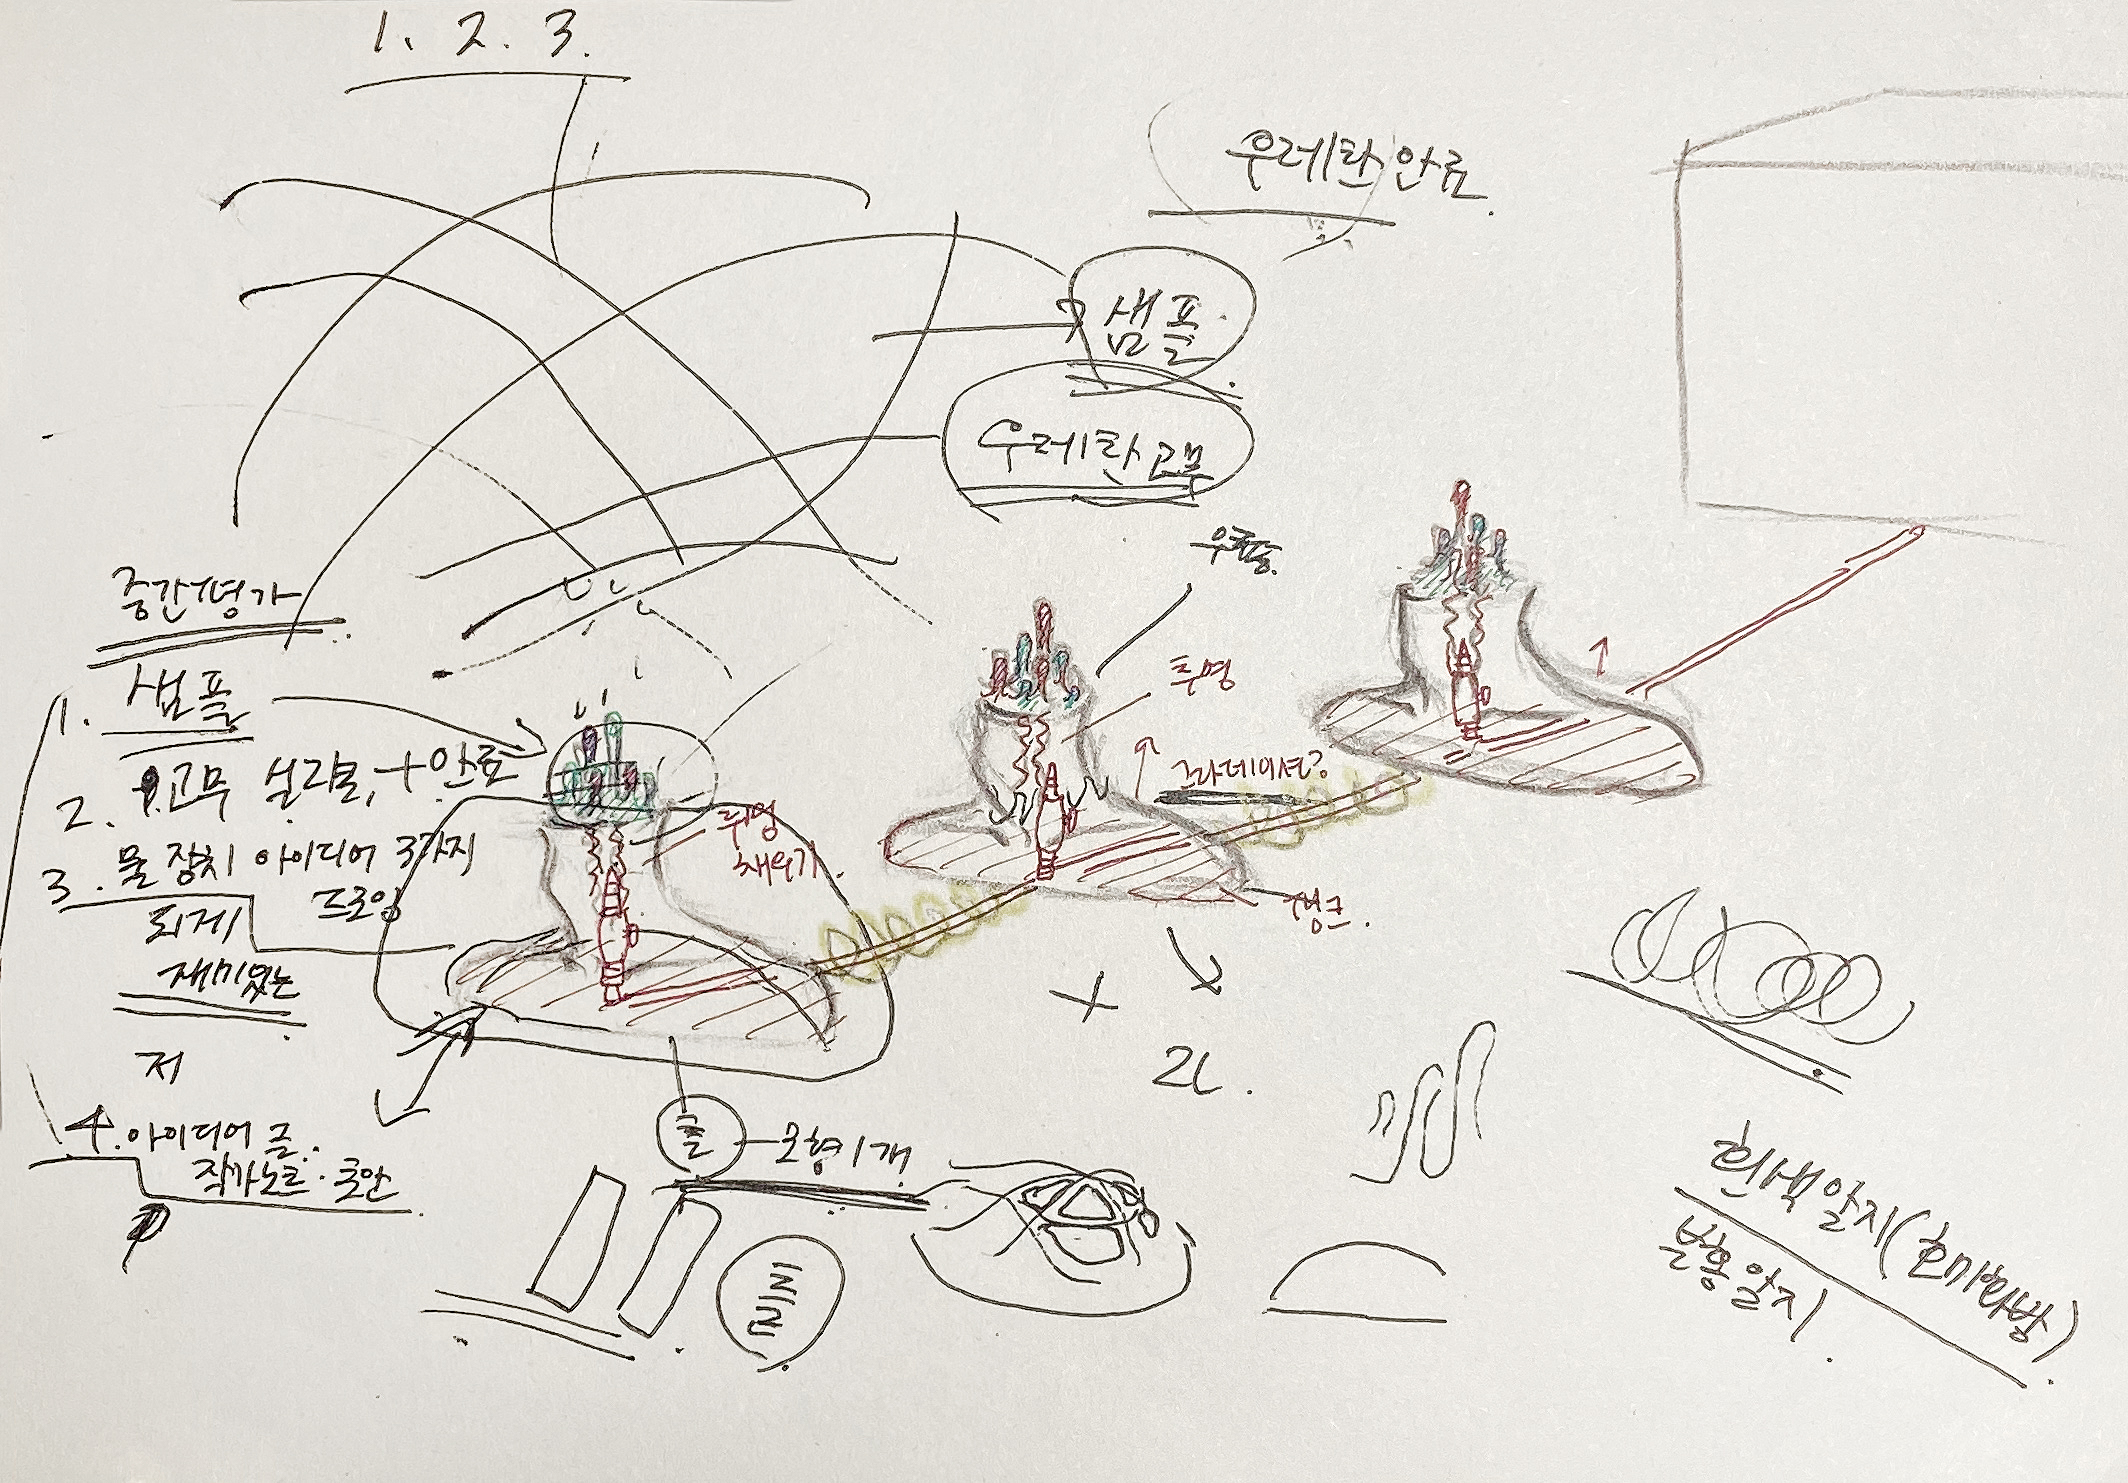 1. 2. 3.
우레탄 안료.
샘플.
우레탄 고무
중간평가
1. 샘플
2. 고무 실리콘, + 안료
3. 물 장치 아이디어 3가지
드로잉
되게
재미있는
저
4. 아이디어 글..
작가노트.
투명
그라데이션?
투명
채우기.
탱크.
+
모형 1개
흰색 알지(
분홍 알지.